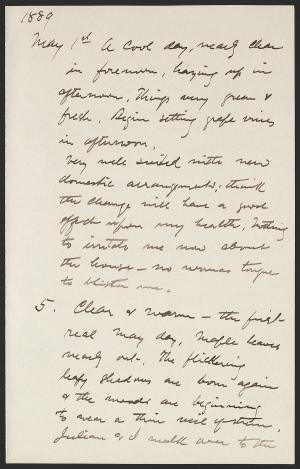 1889
May 1st A cool day, nearly clear
in forenoon, hazing up in
afternoon; Things very green &
fresh. Begin setting grape vines
in afternoon.
Very well suited with new
domestic arrangements; think
the change will have a good
effect upon my health. Nothing
to irritate me now about
the house – no womans tongue
to blister me.
5. Clear & warm – the first
real May day. Maple leaves
nearly out. The flickering
leafy shadows are born again
& the woods are beginning
to wear a thin veil of
Julian & I walk over to the